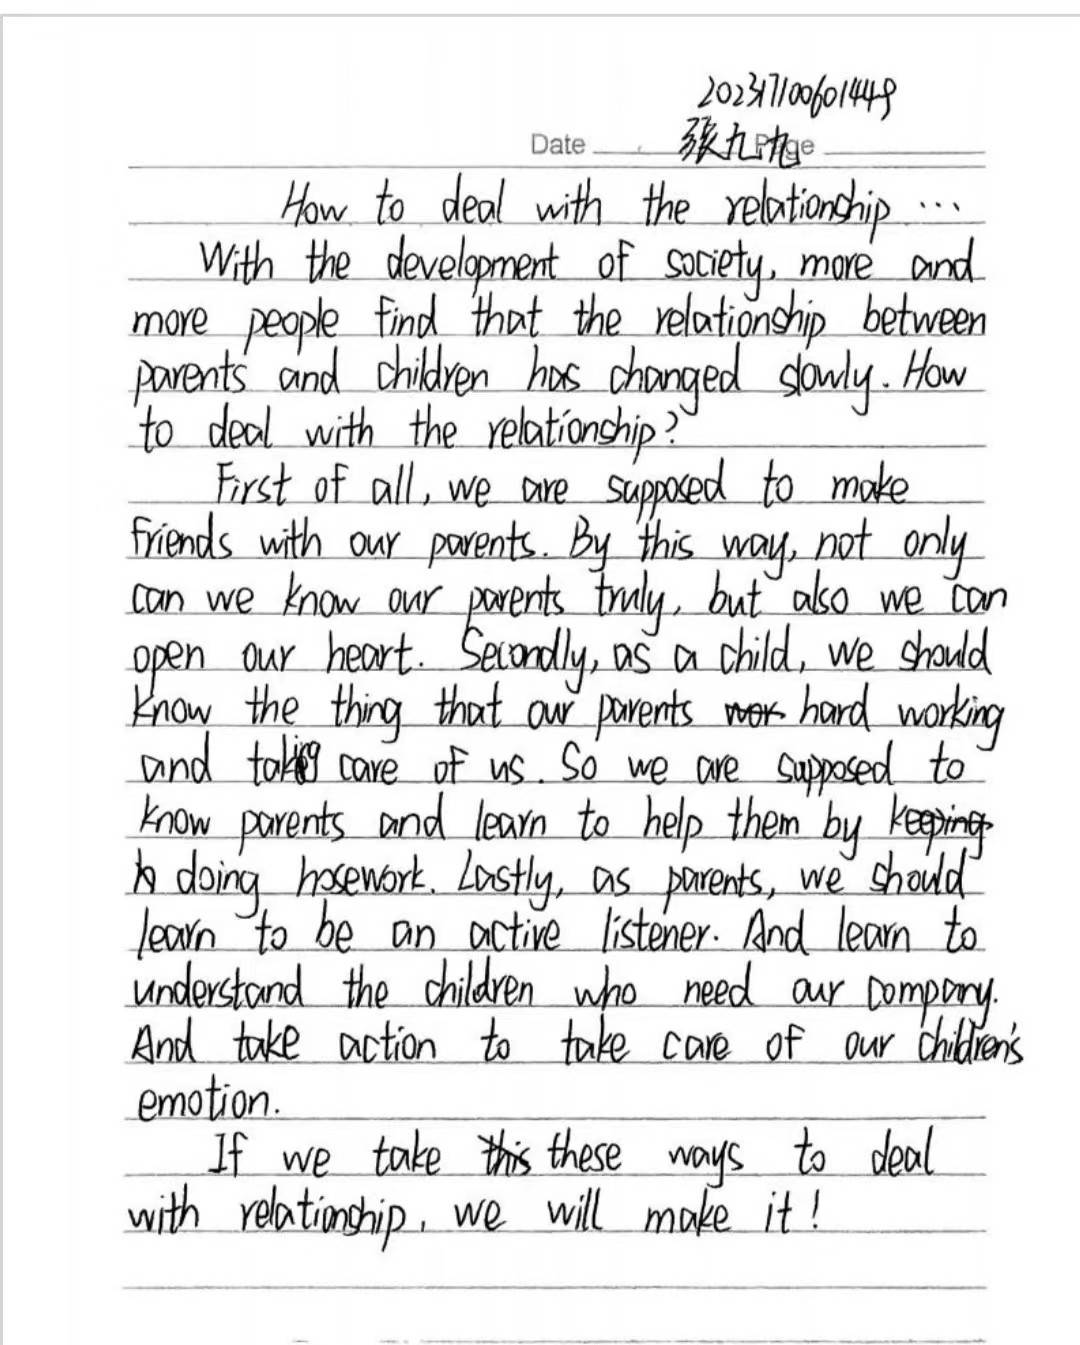 202317100601449
Date 張九九 Page
How to deal with the relationship ...
With the development of society, more and
more people find that the relationship between
parents and children has changed slowly. How
to deal with the relationship?
First of all, we are supposed to make
friends with our parents. By this way, not only
can we know our parents truly, but also we can
open our heart. Secondly, as a child, we should
know the thing that our parents wor hard working
and taking care of us. So we are supposed to
know parents and learn to help them by keeping
doing hosework. Lastly, as parents, we should
learn to be an active listener. And learn to
understand the children who need our company.
And take action to take care of our children's
emotion.
If we take this these ways to deal
with relationship, we will make it!